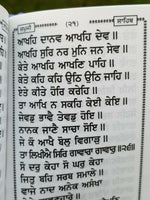 ਜਪੁਜੀ (੨੧) ਸਾਹਿਬ
ਆਖਹਿ ਦਾਨਵ ਆਖਹਿ ਦੇਵ ॥
ਆਖਹਿ ਸੁਰਿ ਨਰ ਮੁਨਿ ਜਨ ਸੇਵ ॥
ਕੇਤੇ ਆਖਹਿ ਆਖਣਿ ਪਾਹਿ ॥
ਕੇਤੇ ਕਹਿ ਕਹਿ ਉਠਿ ਉਠਿ ਜਾਹਿ ॥
ਏਤੇ ਕੀਤੇ ਹੋਰਿ ਕਰੇਹਿ ॥
ਤਾ ਆਖਿ ਨ ਸਕਹਿ ਕੇਈ ਕੇਇ ॥
ਜੇਵਡੁ ਭਾਵੈ ਤੇਵਡੁ ਹੋਇ ॥
ਨਾਨਕ ਜਾਣੈ ਸਾਚਾ ਸੋਇ ॥
ਜੇ ਕੋ ਆਖੈ ਬੋਲੁ ਵਿਗਾੜੁ ॥
ਤਾ ਲਿਖੀਐ ਸਿਰਿ ਗਾਵਾਰਾ ਗਾਵਾਰੁ ॥੨੬॥
ਸੋ ਦਰੁ ਕੇਹਾ ਸੋ ਘਰੁ ਕੇਹਾ
ਜਿਤੁ ਬਹਿ ਸਰਬ ਸਮਾਲੇ ॥
ਵਾਜੇ ਨਾਦ ਅਨੇਕ ਅਸੰਖਾ